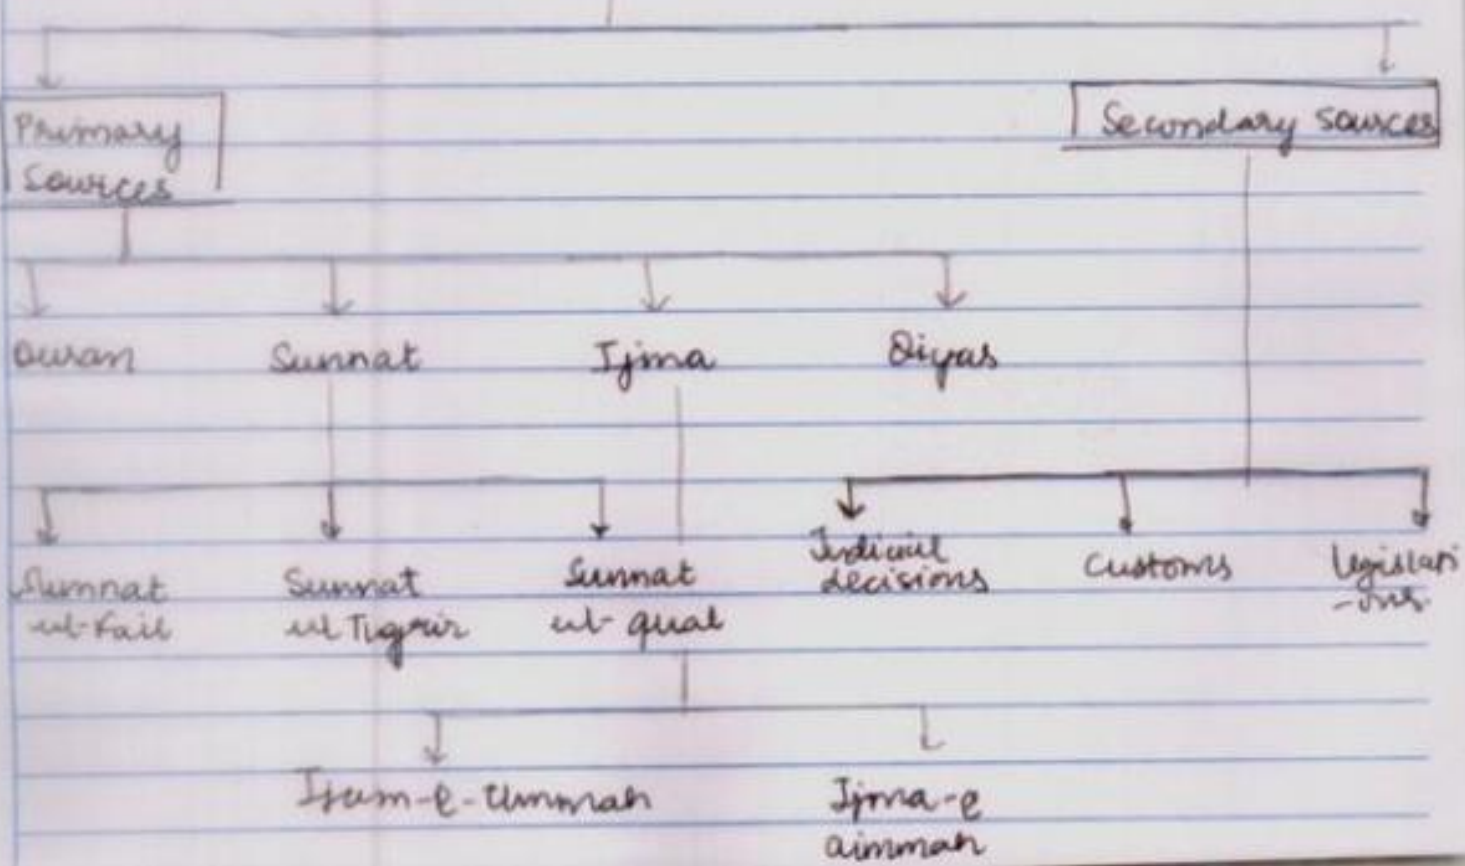 Primary
Sources
Secondary sources
Quran
Sunnat
Ijma
Qiyas
Sunnat
ul-Fail
Sunnat
ul Tigrir
Sunnat
ul-qual
Judicial
decisions
Customs
legislati
-ons.
Ijam-e-Ummah
Ijma-e
aimmah